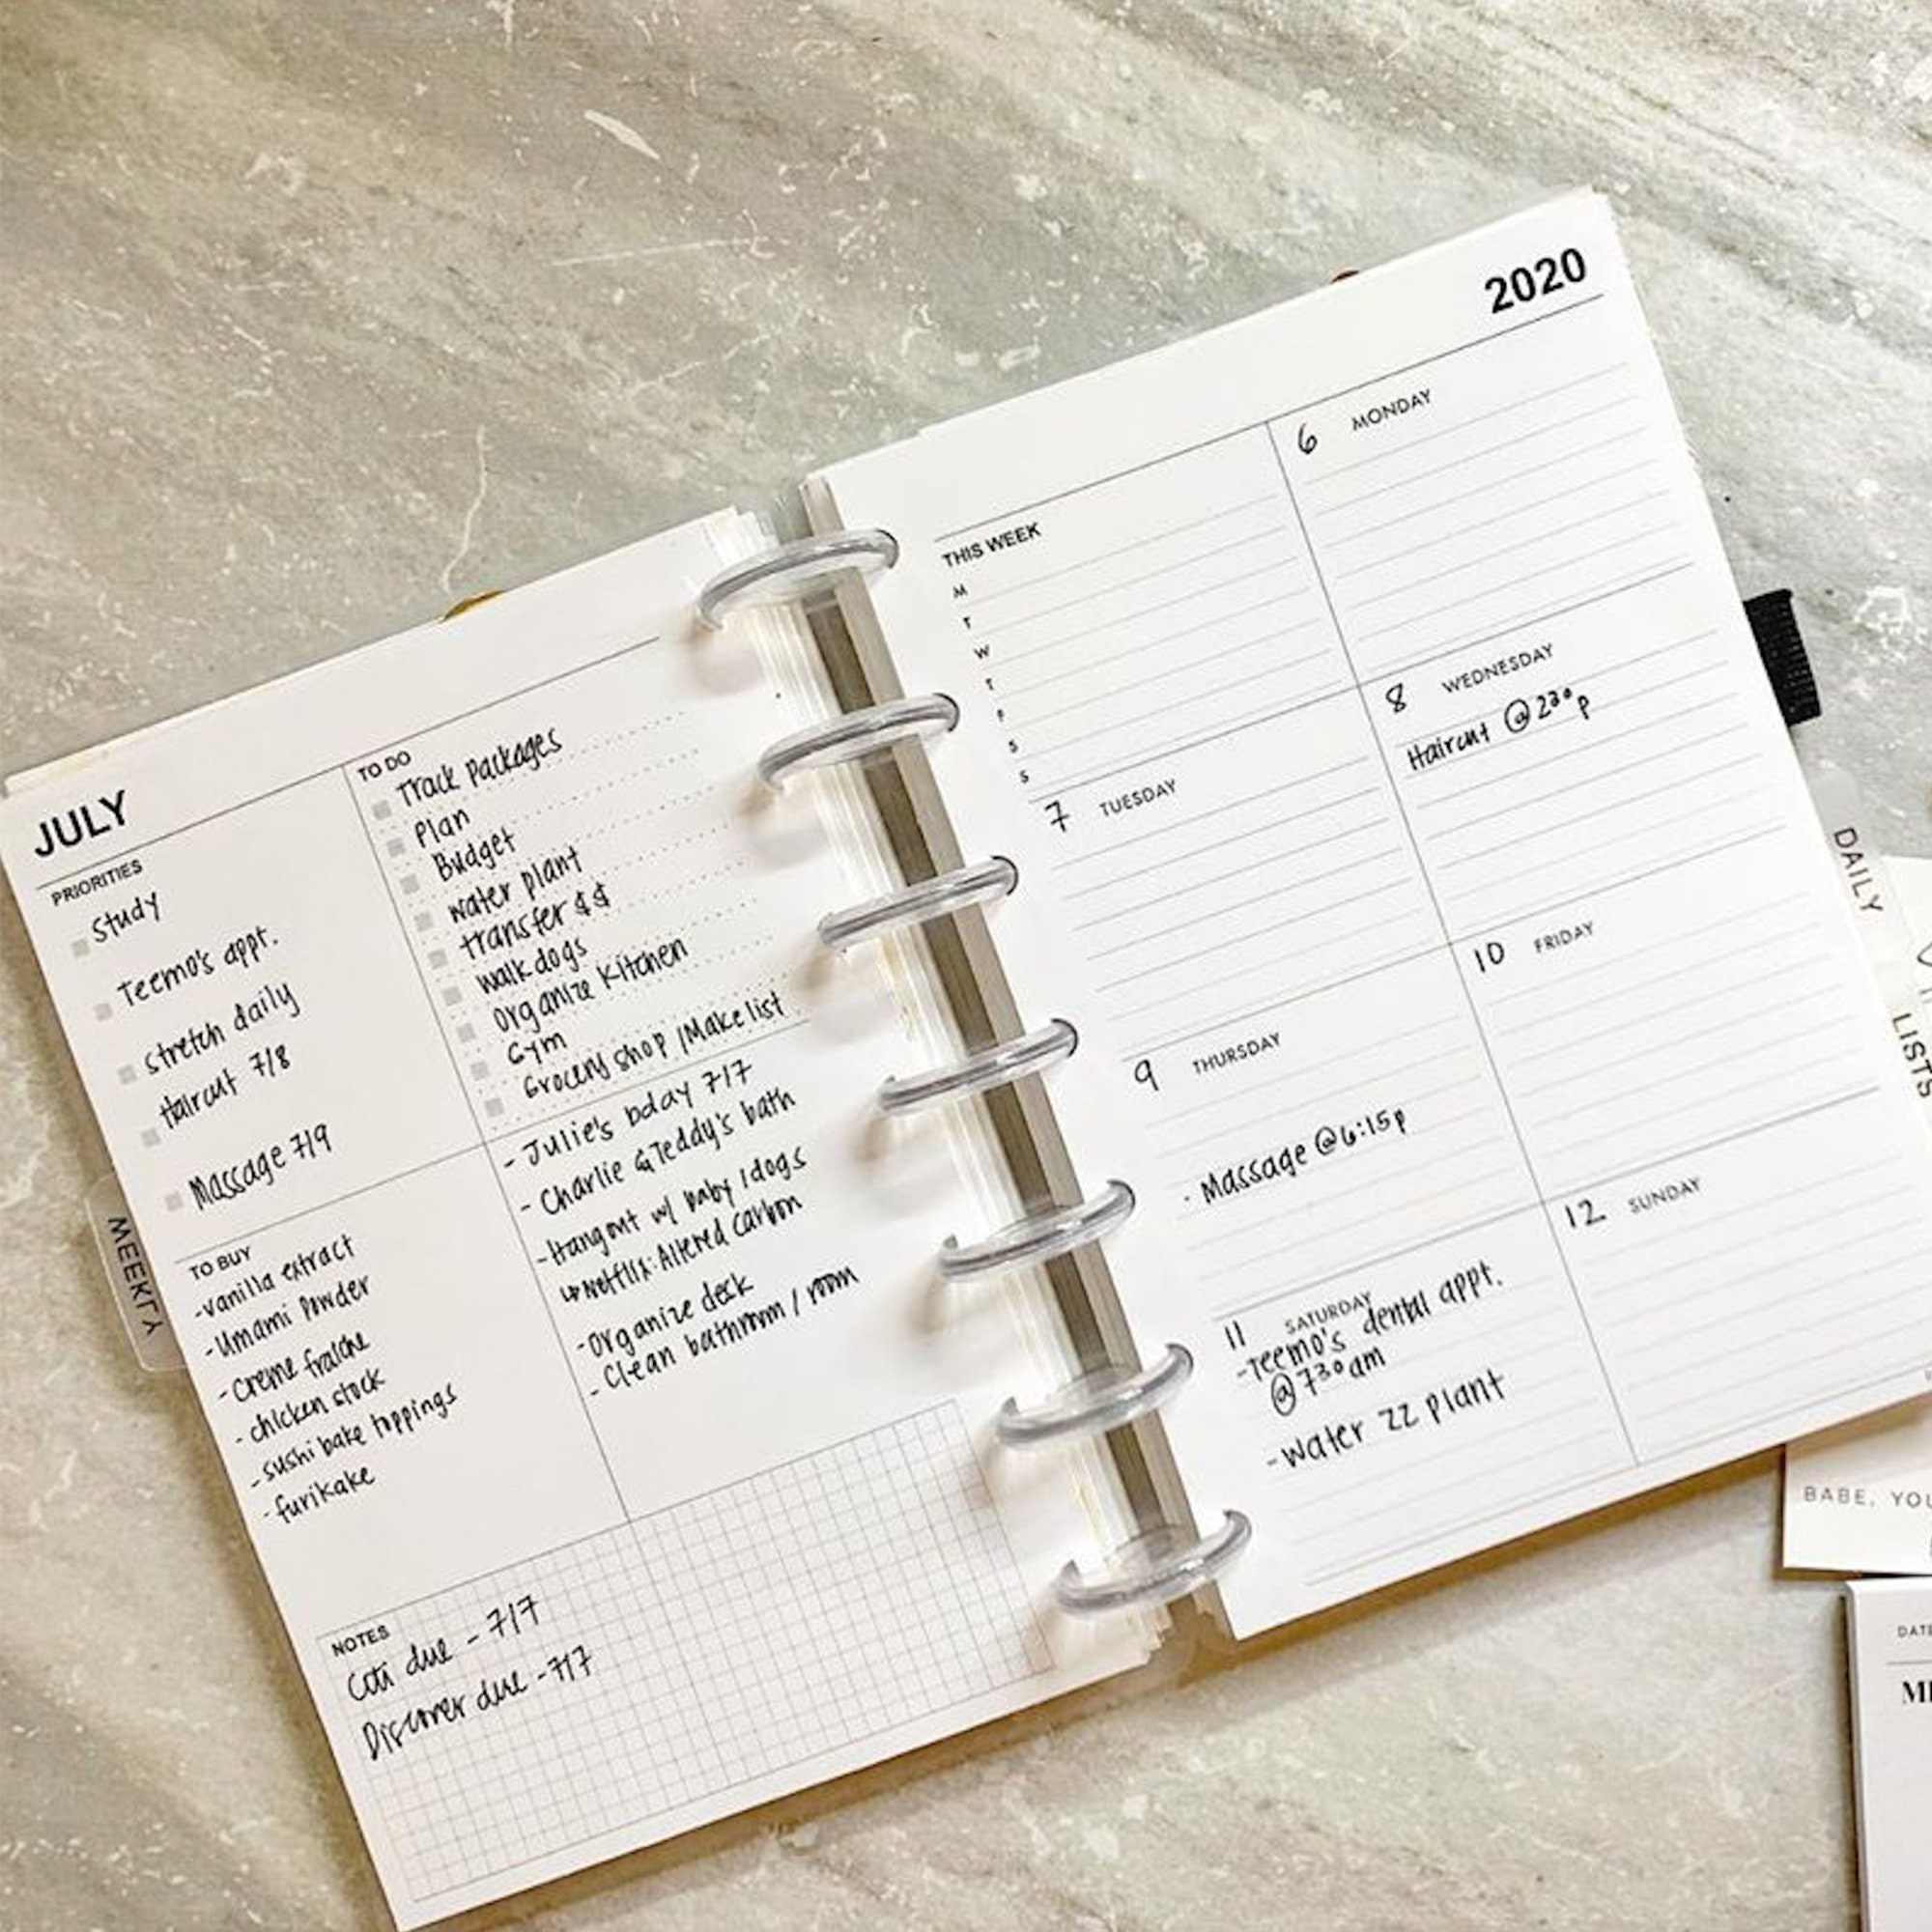 JULY
PRIORITIES
Study
Teemo's appt.
stretch daily
Haircut 7/8
Massage 7/9
TO DO
Track Packages
Plan
Budget
water plant
transfer $$
walk dogs
organize kitchen
Gym
Grocery shop / Make list
- Julie's bday 7/7
- Charlie & Teddy's bath
- Hangout w/ baby / dogs
↳ Netflix: Altered Carbon
- organize desk
- Clean bathroom / room
TO BUY
- vanilla extract
- Umami Powder
- creme fraiche
- chicken stock
- sushi bake toppings
- furikake
NOTES
due - 7/7
Discover due - 7/7
WEEKLY
2020
THIS WEEK
M
T
W
T
F
S
S
6 MONDAY
7 TUESDAY
8 WEDNESDAY
Haircut @ 2³⁰p
9 THURSDAY
· Massage @ 6:15p
10 FRIDAY
11 SATURDAY
- Teemo's dental appt.
@ 7³⁰am
- water ZZ plant
12 SUNDAY
DAILY
LISTS
BABE, YOU
DATE